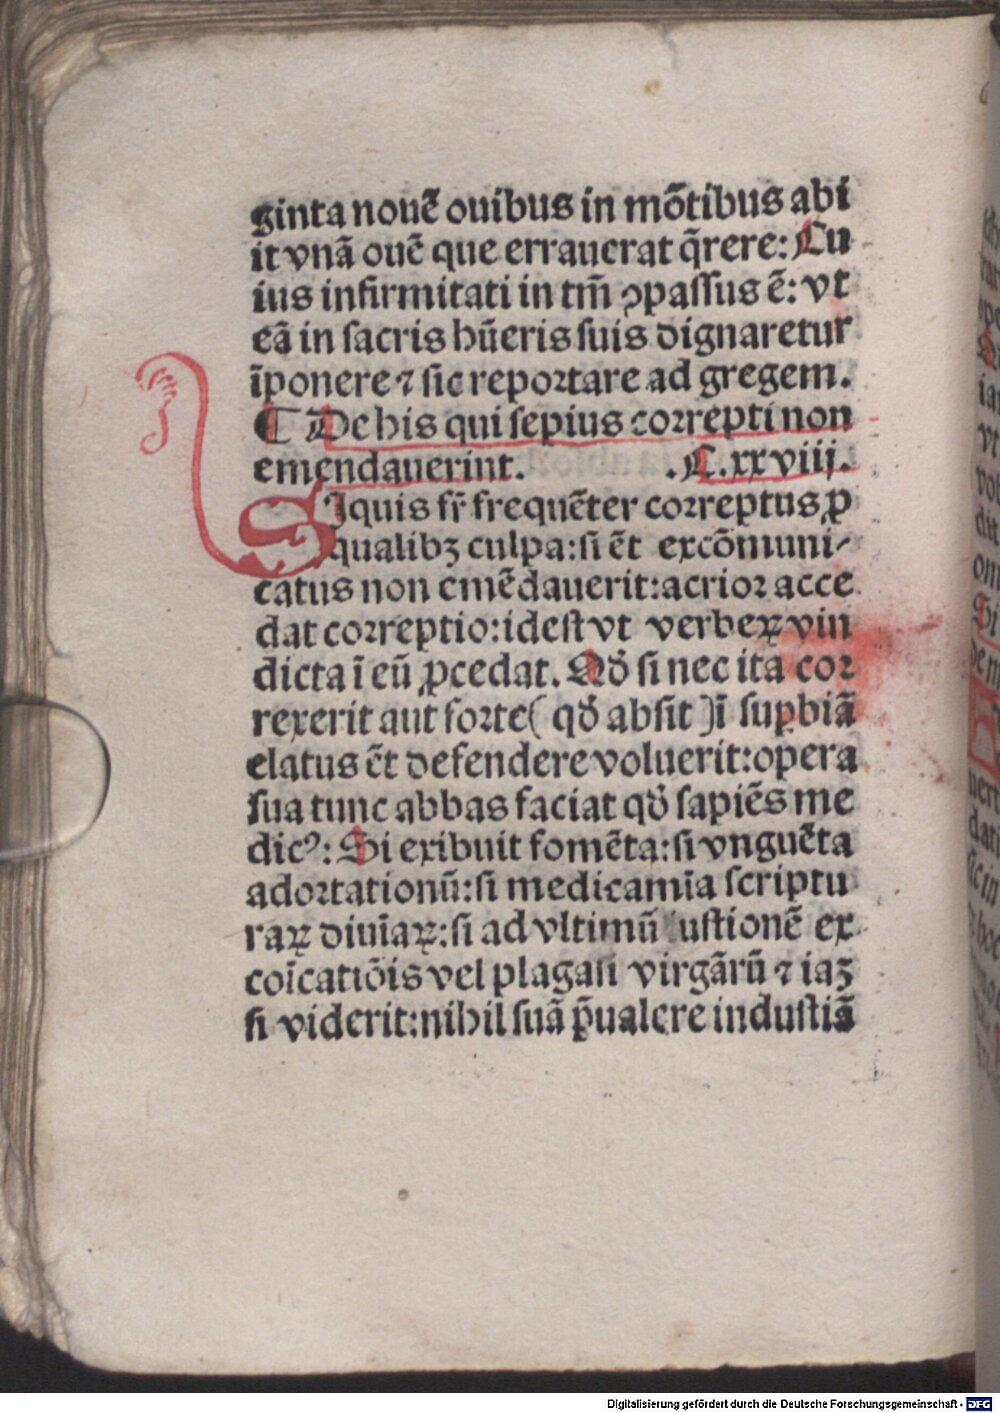 ginta nouē ouibus in mōtibus abi
it vnā ouē que errauerat q̄rere: Cu
ius infirmitati in tm̄ ꝯpassus ē: vt
eā in sacris hūeris suis dignaretur
īponere ⁊ sic reportare ad gregem.
¶ De his qui sepius correpti non
emendauerint. .C.xxviij.
SIquis fr̄ frequēter correptus ꝓ
qualibꝫ culpa: si ēt excōmuni⸗
catus non emēdauerit: acrior acce
dat correptio: idest vt verbeꝝ vin
dicta ī eū ꝓcedat. Qđ si nec ita cor
rexerit aut forte( qđ absit )ī suꝑbiā
elatus ēt defendere voluerit: opera
sua tunc abbas faciat qđ sapiēs me
dicꝰ: Si exibuit fomēta: si vnguēta
adortationū: si medicamīa scriptu
raꝝ diuīaꝝ: si ad vltimū ustionē ex
coīcatiōis vel plagaꝝ virgārū ⁊ iaꝫ
si viderit: nihil suā p̄ualere industiā
Digitalisierung gefördert durch die Deutsche Forschungsgemeinschaft - DFG